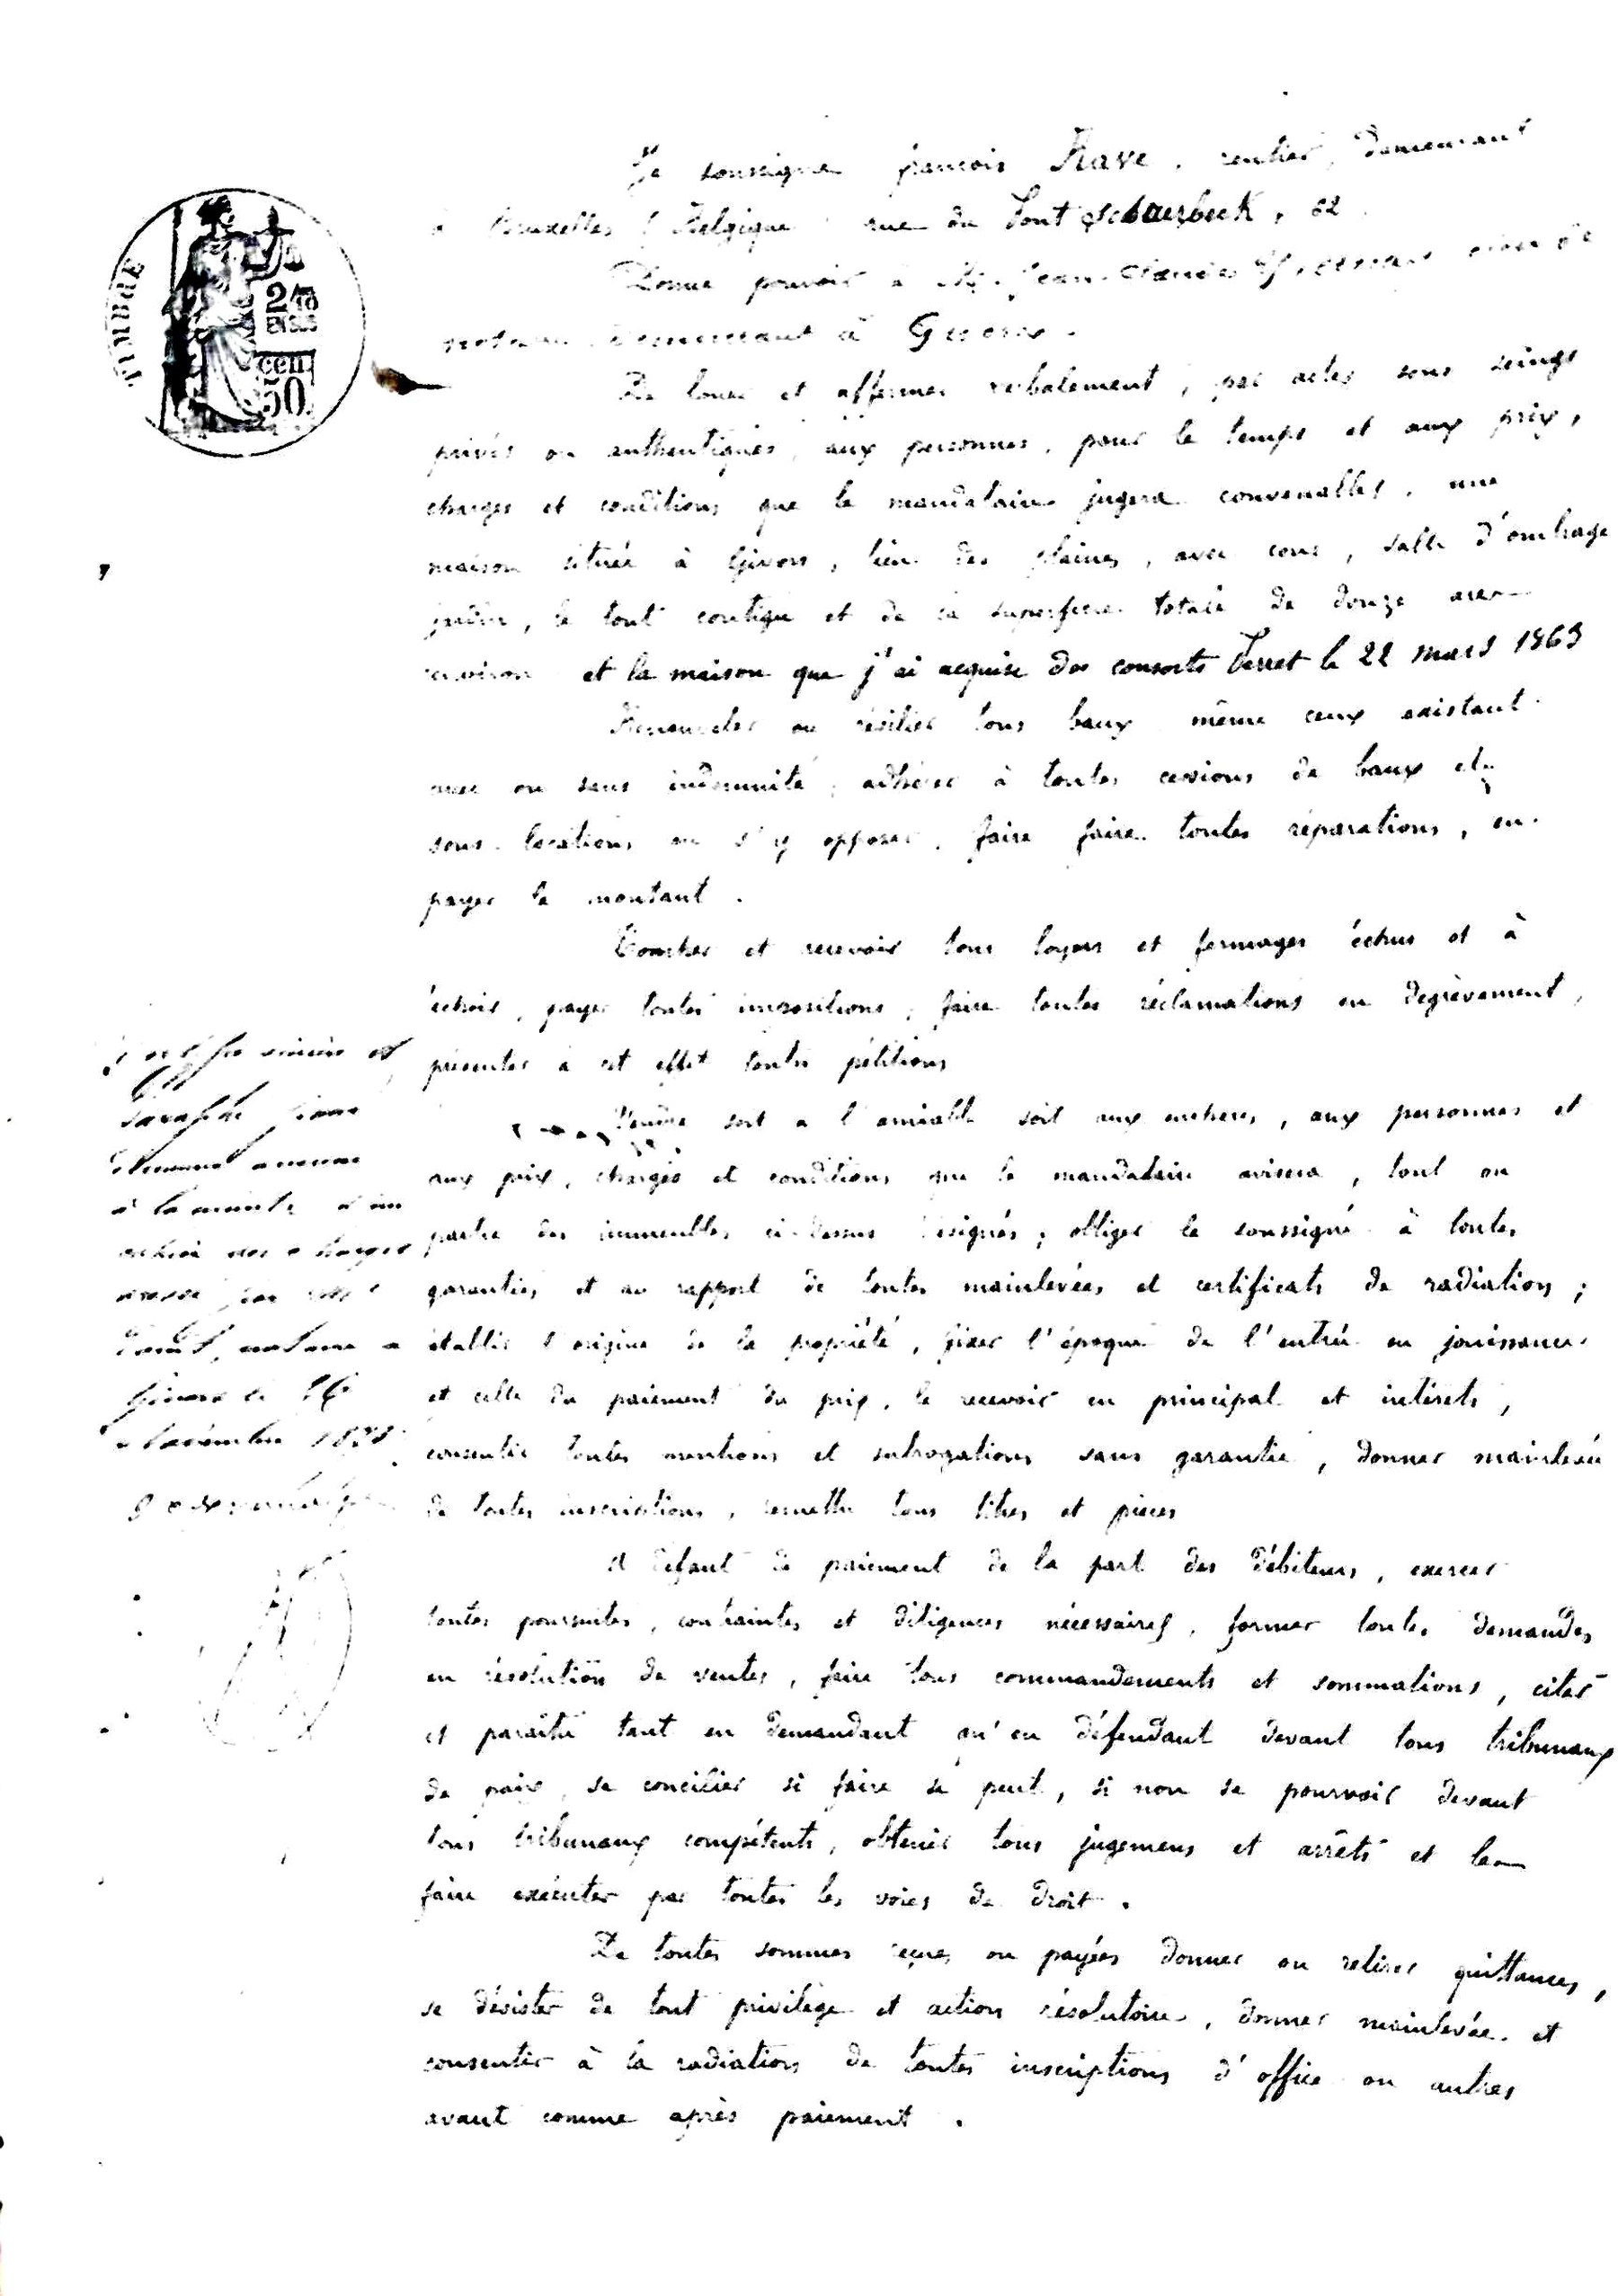 Je soussigné françois Rave, rentier, demeurant
à Bruxelles (Belgique rue du Pont Schaerbeek, 62
Donne pouvoir à Mr Jean Claude clerc de
notaire demeurant à Givors.
De louer et affermer verbalement, par actes sous seings
privés ou authentiques, aux personnes, pour le temps et aux prix,
charges et conditions que le mandataire jugera convenables, une
maison située à Givors, lieu des plaines, avec cour, salle d'ombrage
jardin, le tout contigu et de la superficie totale de douze ares
environ et la maison que j'ai acquise des consorts Ferret le 22 mars 1863
Renouveler ou résilier tous baux même ceux existant
avec ou sans indemnité, adhérer à toutes cessions de baux et
sous-locations ou s'y opposer, faire faire toutes réparations, en
payer le montant.
Toucher et recevoir tous loyers et fermages échus et à
échoir, payer toutes impositions, faire toutes réclamations en dégrèvement,
présenter à cet effet toutes pétitions
Vendre soit à l'amiable soit aux enchères, aux personnes et
aux prix, charges et conditions que le mandataire avisera, tout ou
partie des immeubles ci-dessus désignés; obliger le soussigné à toutes
garanties et au rapport de toutes mainlevées et certificats de radiation;
établir l'origine de la propriété, fixer l'époque de l'entrée en jouissance
et celle du paiement du prix, le recevoir en principal et intérêts,
consentir toutes mentions et subrogations sans garantie, donner mainlevée
de toutes inscriptions, remettre tous titres et pièces
A défaut de paiement de la part des débiteurs, exercer
toutes poursuites, contraintes et diligences nécessaires, former toutes demandes
en résolution de ventes, faire tous commandements et sommations, citer
et paraître tant en demandant qu'en défendant devant tous tribunaux
de paix, se concilier si faire se peut, si non se pourvoir devant
tous tribunaux compétents, obtenir tous jugemens et arrêts et les
faire exécuter par toutes les voies de droit.
De toutes sommes reçues ou payées donner ou retirer quittances,
se désister de tout privilège et action résolutoire, donner mainlevée et
consentir à la radiation de toutes inscriptions d'office ou autres
avant comme après paiement.
TIMBRE
2/10
EN SUS
cen
50
et
à la minute d'un
des charges
notaire à
Givors le 16